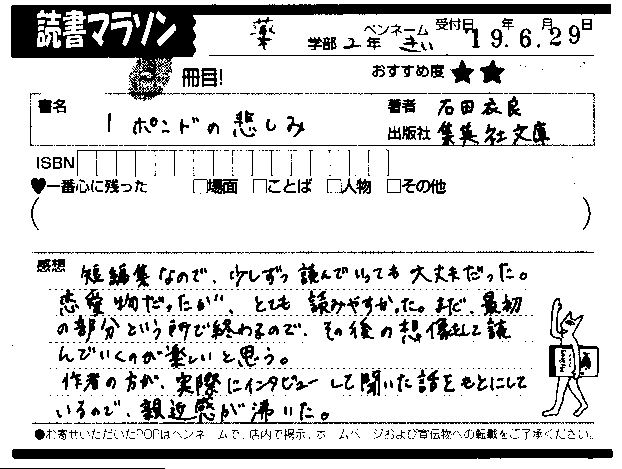 読書マラソン
薬 学部 2年 ペンネーム きい 受付日 '19年6月29日
2 冊目! おすすめ度 ★★
書名 1ポンドの悲しみ 著者 石田衣良
出版社 集英社文庫
ISBN
♥一番心に残った □場面 □ことば □人物 □その他
( )
感想 短編集なので、少しずつ読んでいっても大丈夫だった。
恋愛物だったが、とても読みやすかった。まだ、最初
の部分という所で終わるので、その後の想像をして読
んでいくのが楽しいと思う。
作者の方が、実際にインタビューして聞いた話をもとにして
いるので、親近感が沸いた。
●お寄せいただいたPOPはペンネームで、店内で掲示、ホームページおよび宣伝物への転載をご了承ください。